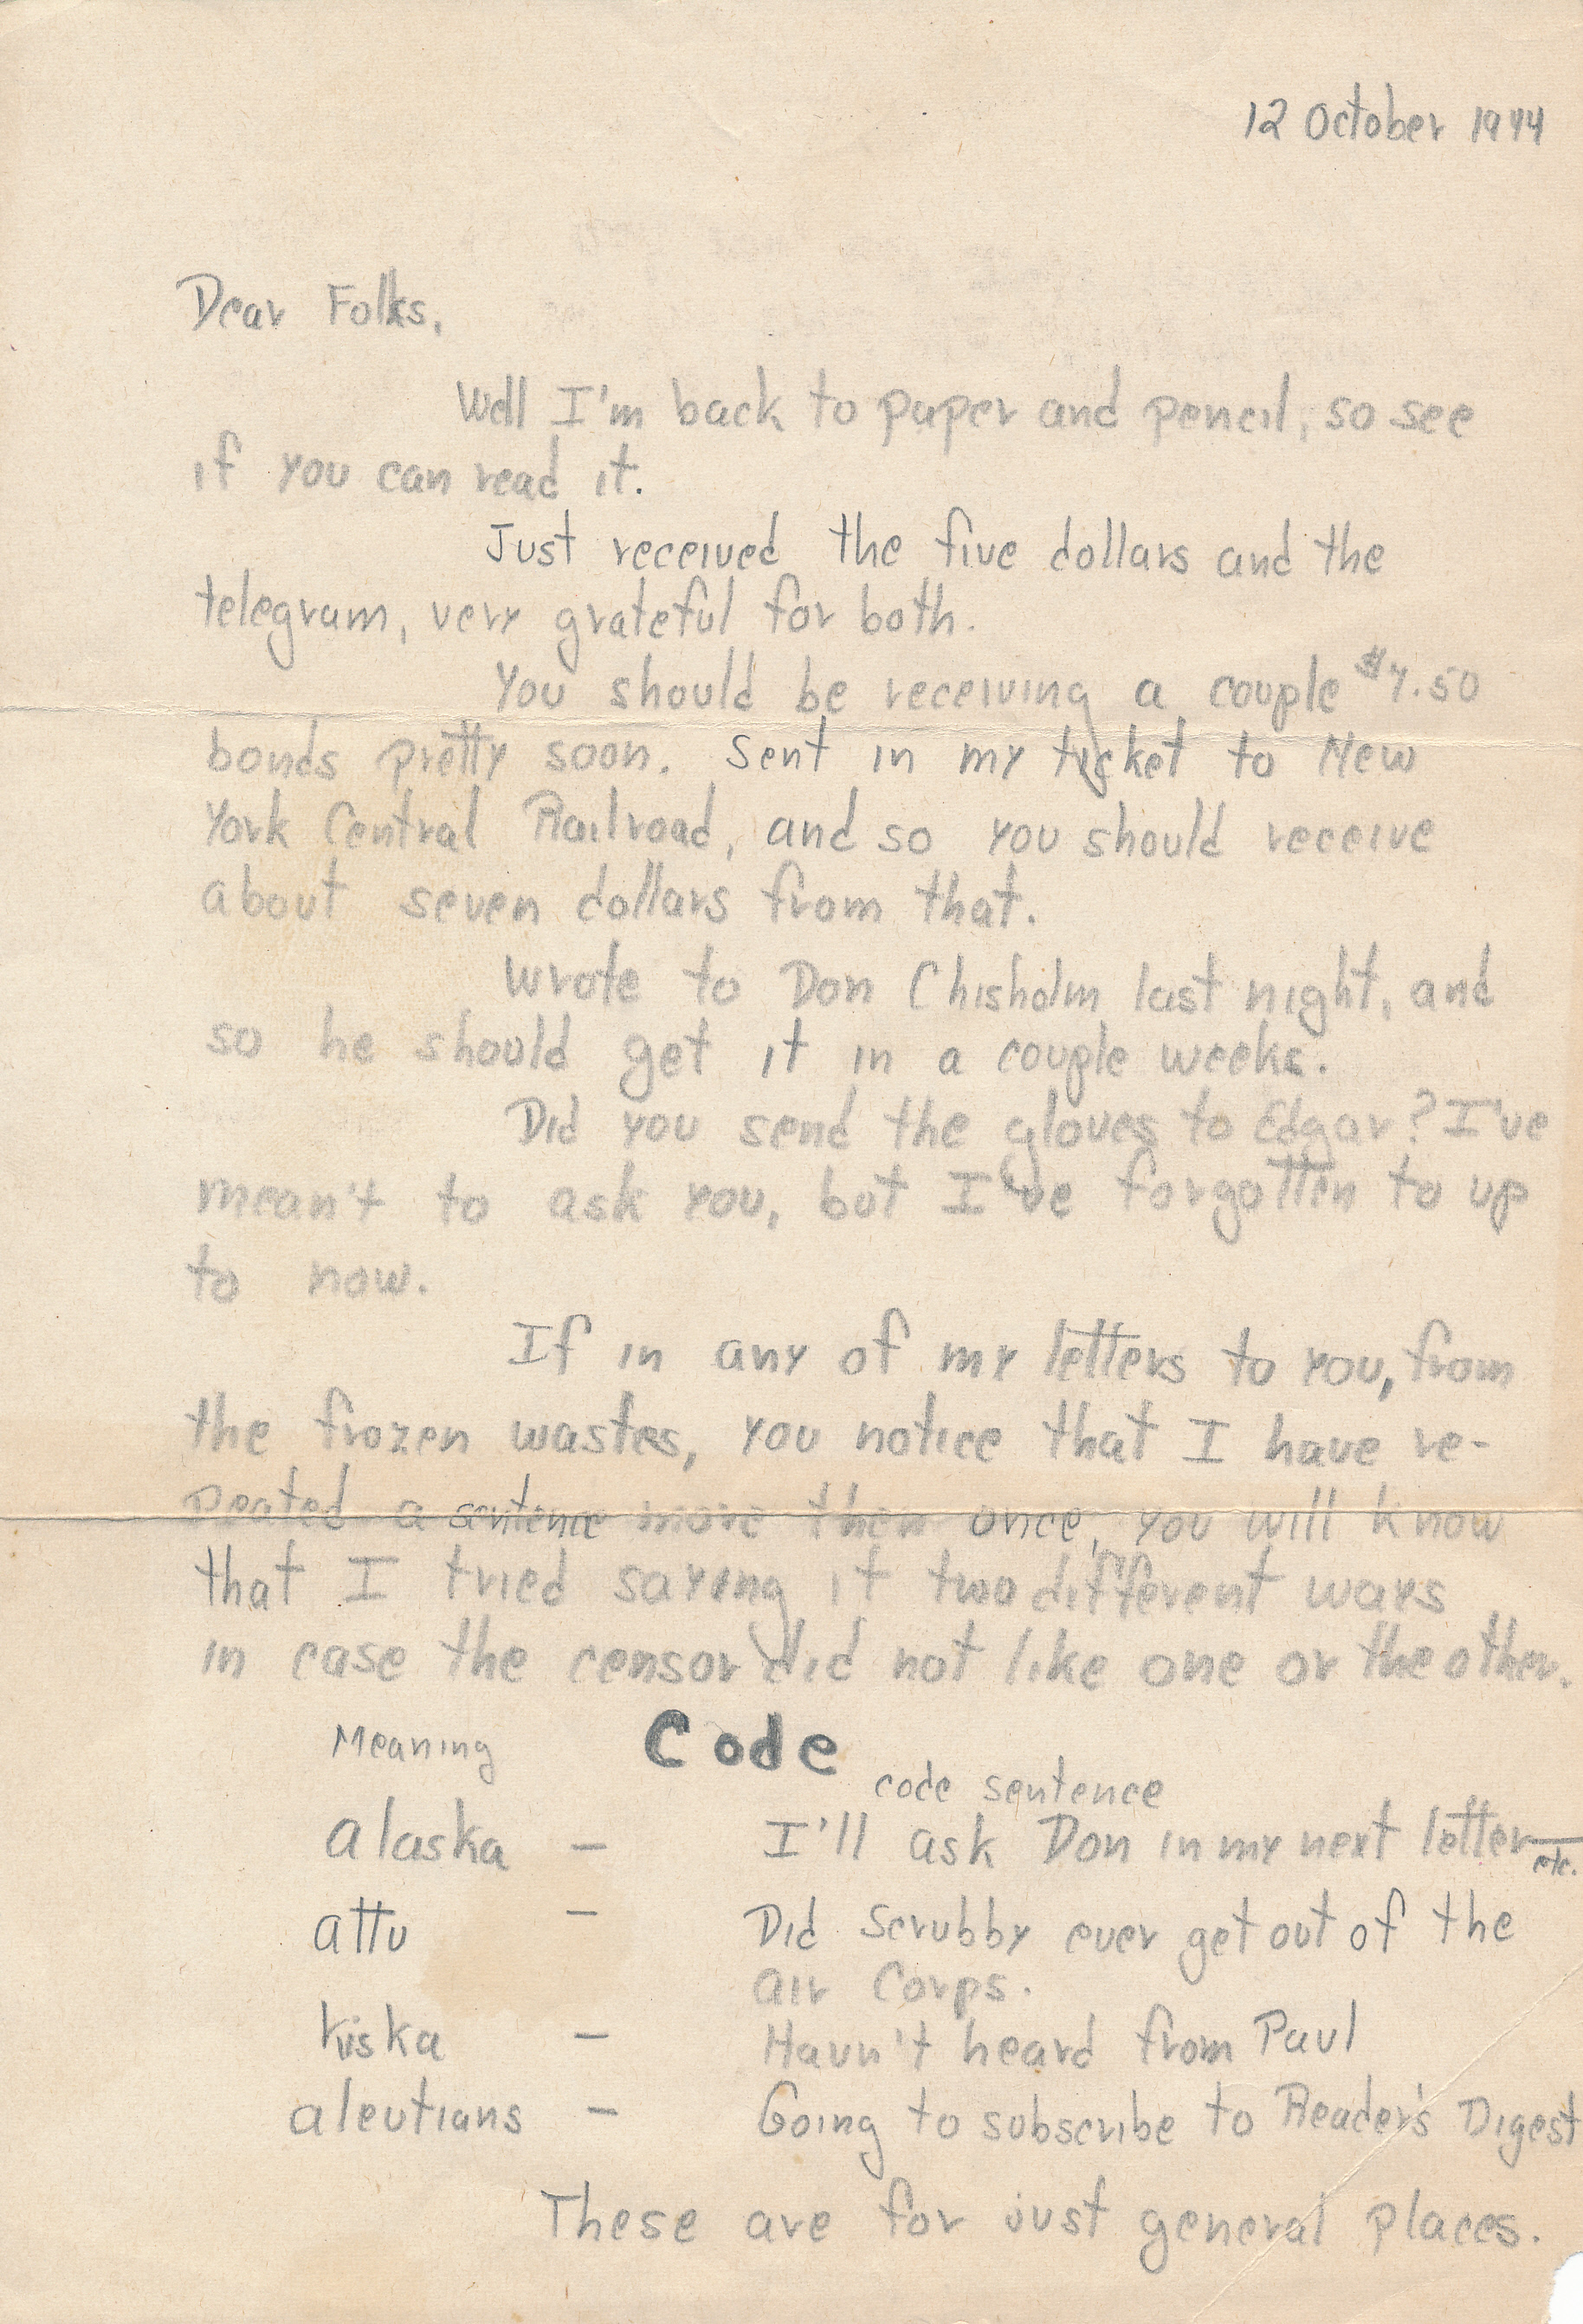 12 October 1944
Dear Folks,
Well I'm back to paper and pencil, so see
if you can read it.
Just received the five dollars and the
telegram, very grateful for both.
You should be receiving a couple $7.50
bonds pretty soon. Sent in my ticket to New
York Central Railroad, and so you should receive
about seven dollars from that.
Wrote to Don Chisholm last night, and
so he should get it in a couple weeks.
Did you send the gloves to Edgar? I've
mean't to ask you, but I've forgotten to up
to now.
If in any of my letters to you, from
the frozen wastes, you notice that I have re-
peated a sentence more then once, you will know
that I tried saying it two different ways
in case the censor did not like one or the other.
Meaning Code
code sentence
alaska - I'll ask Don in my next letter etc.
attu - Did Scrubby ever get out of the
air Corps.
kiska - Havn't heard from Paul
aleutians - Going to subscribe to Reader's Digest
These are for just general places.